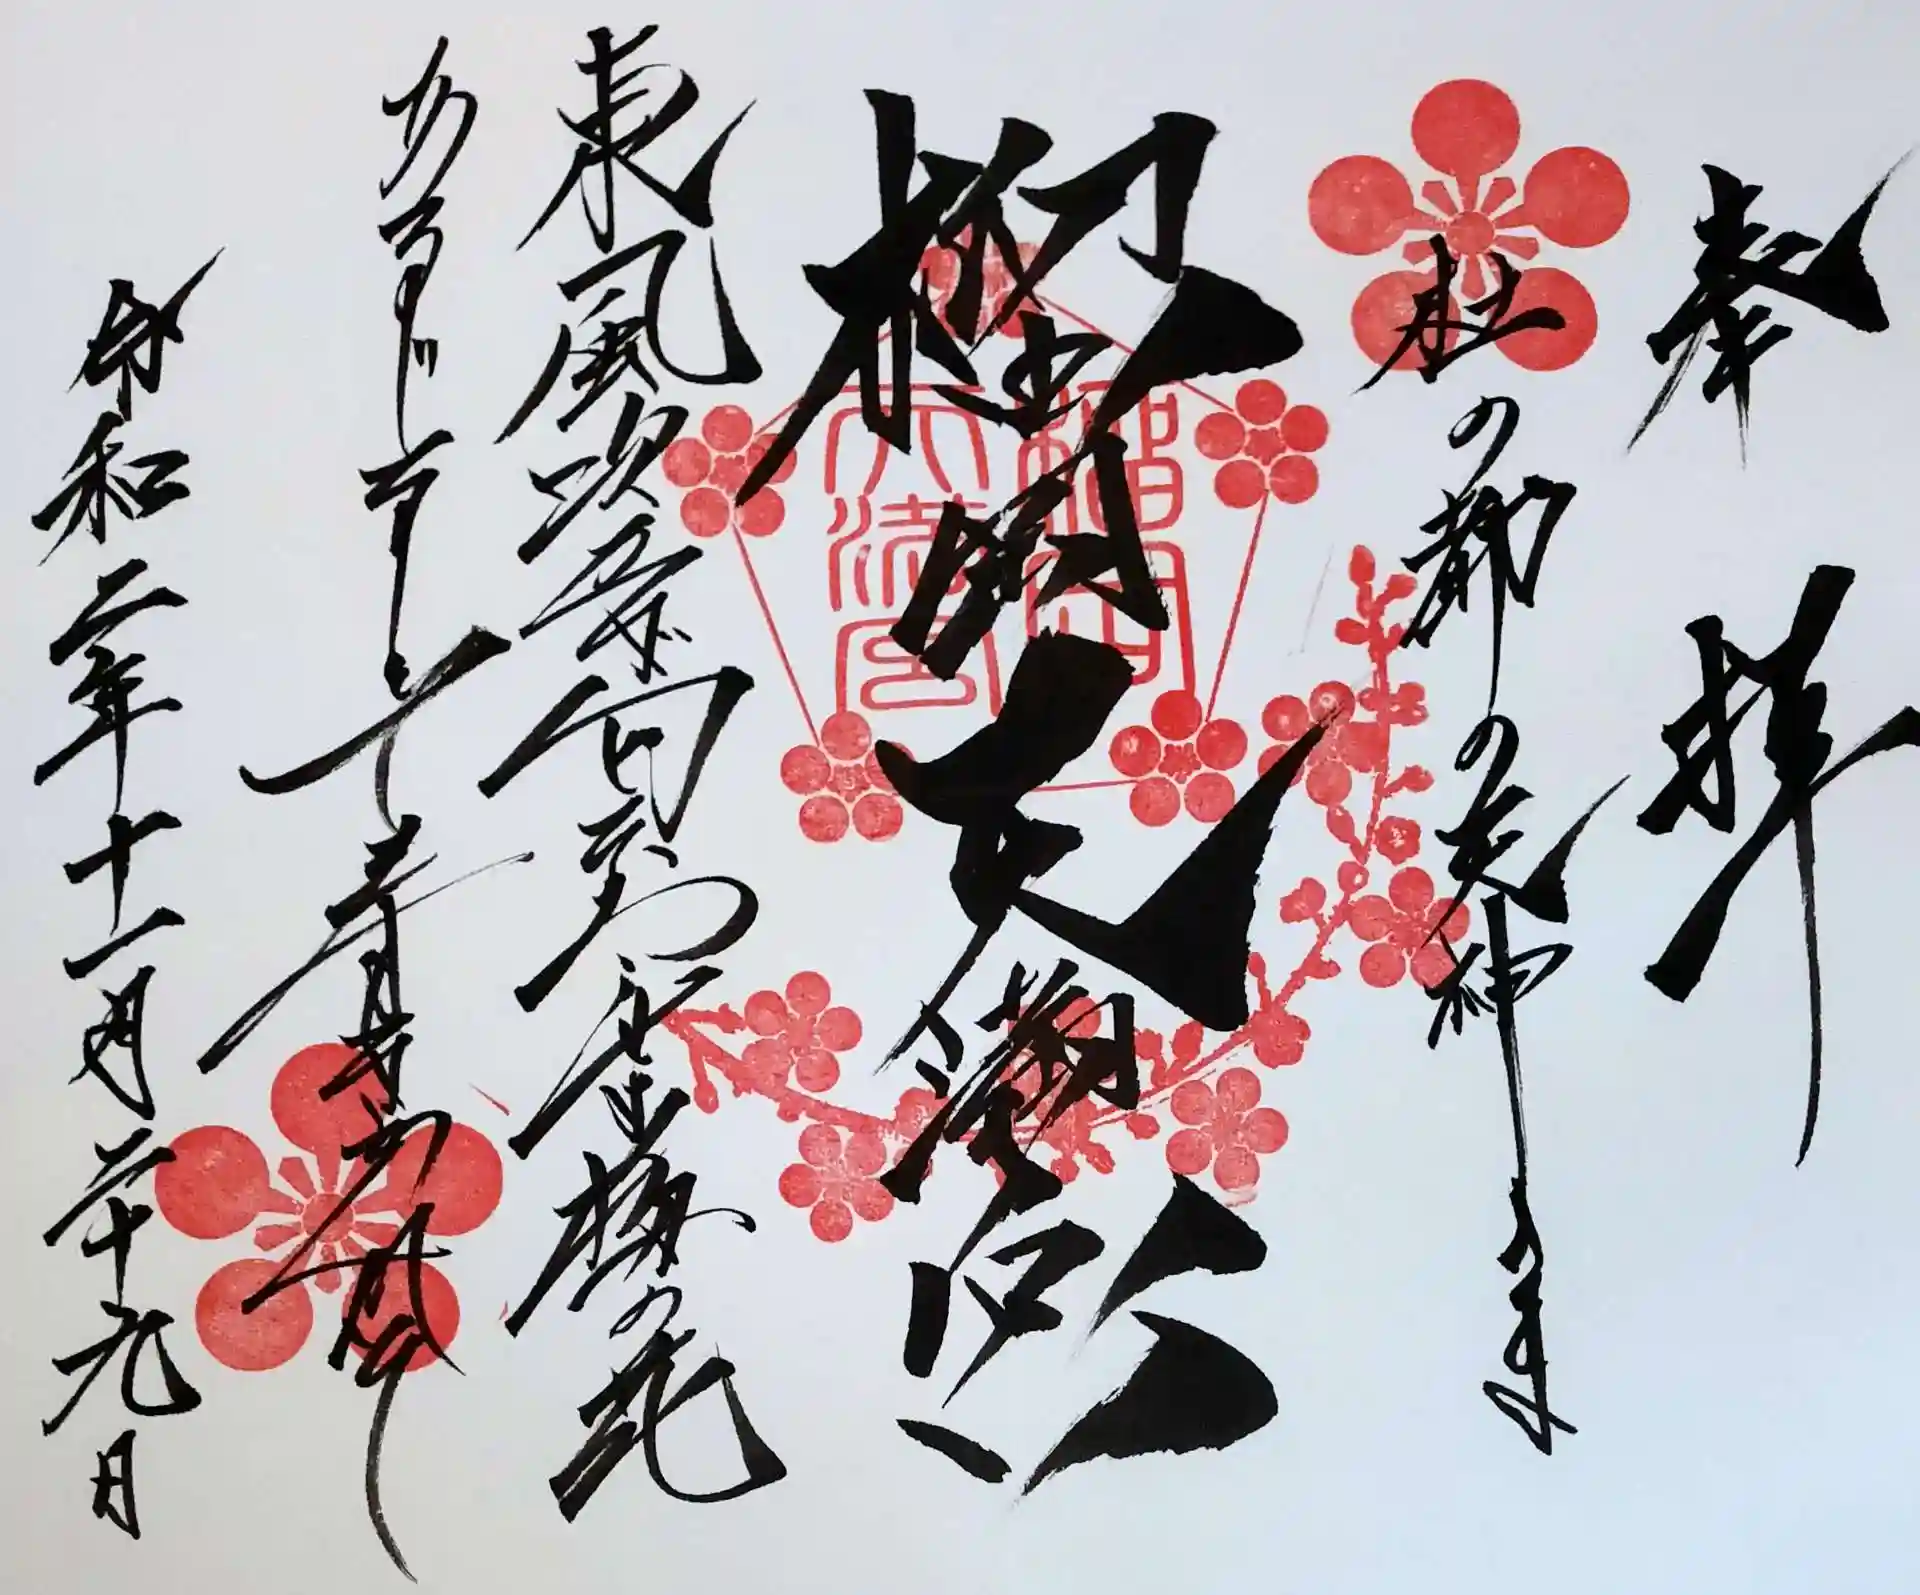 奉拝
杜の都の天神さま
榴岡天満宮
榴岡
天満宮
東風吹かば匂ひおこせよ梅の花
あるじなしとて春な忘れそ
令和二年十一月二十九日